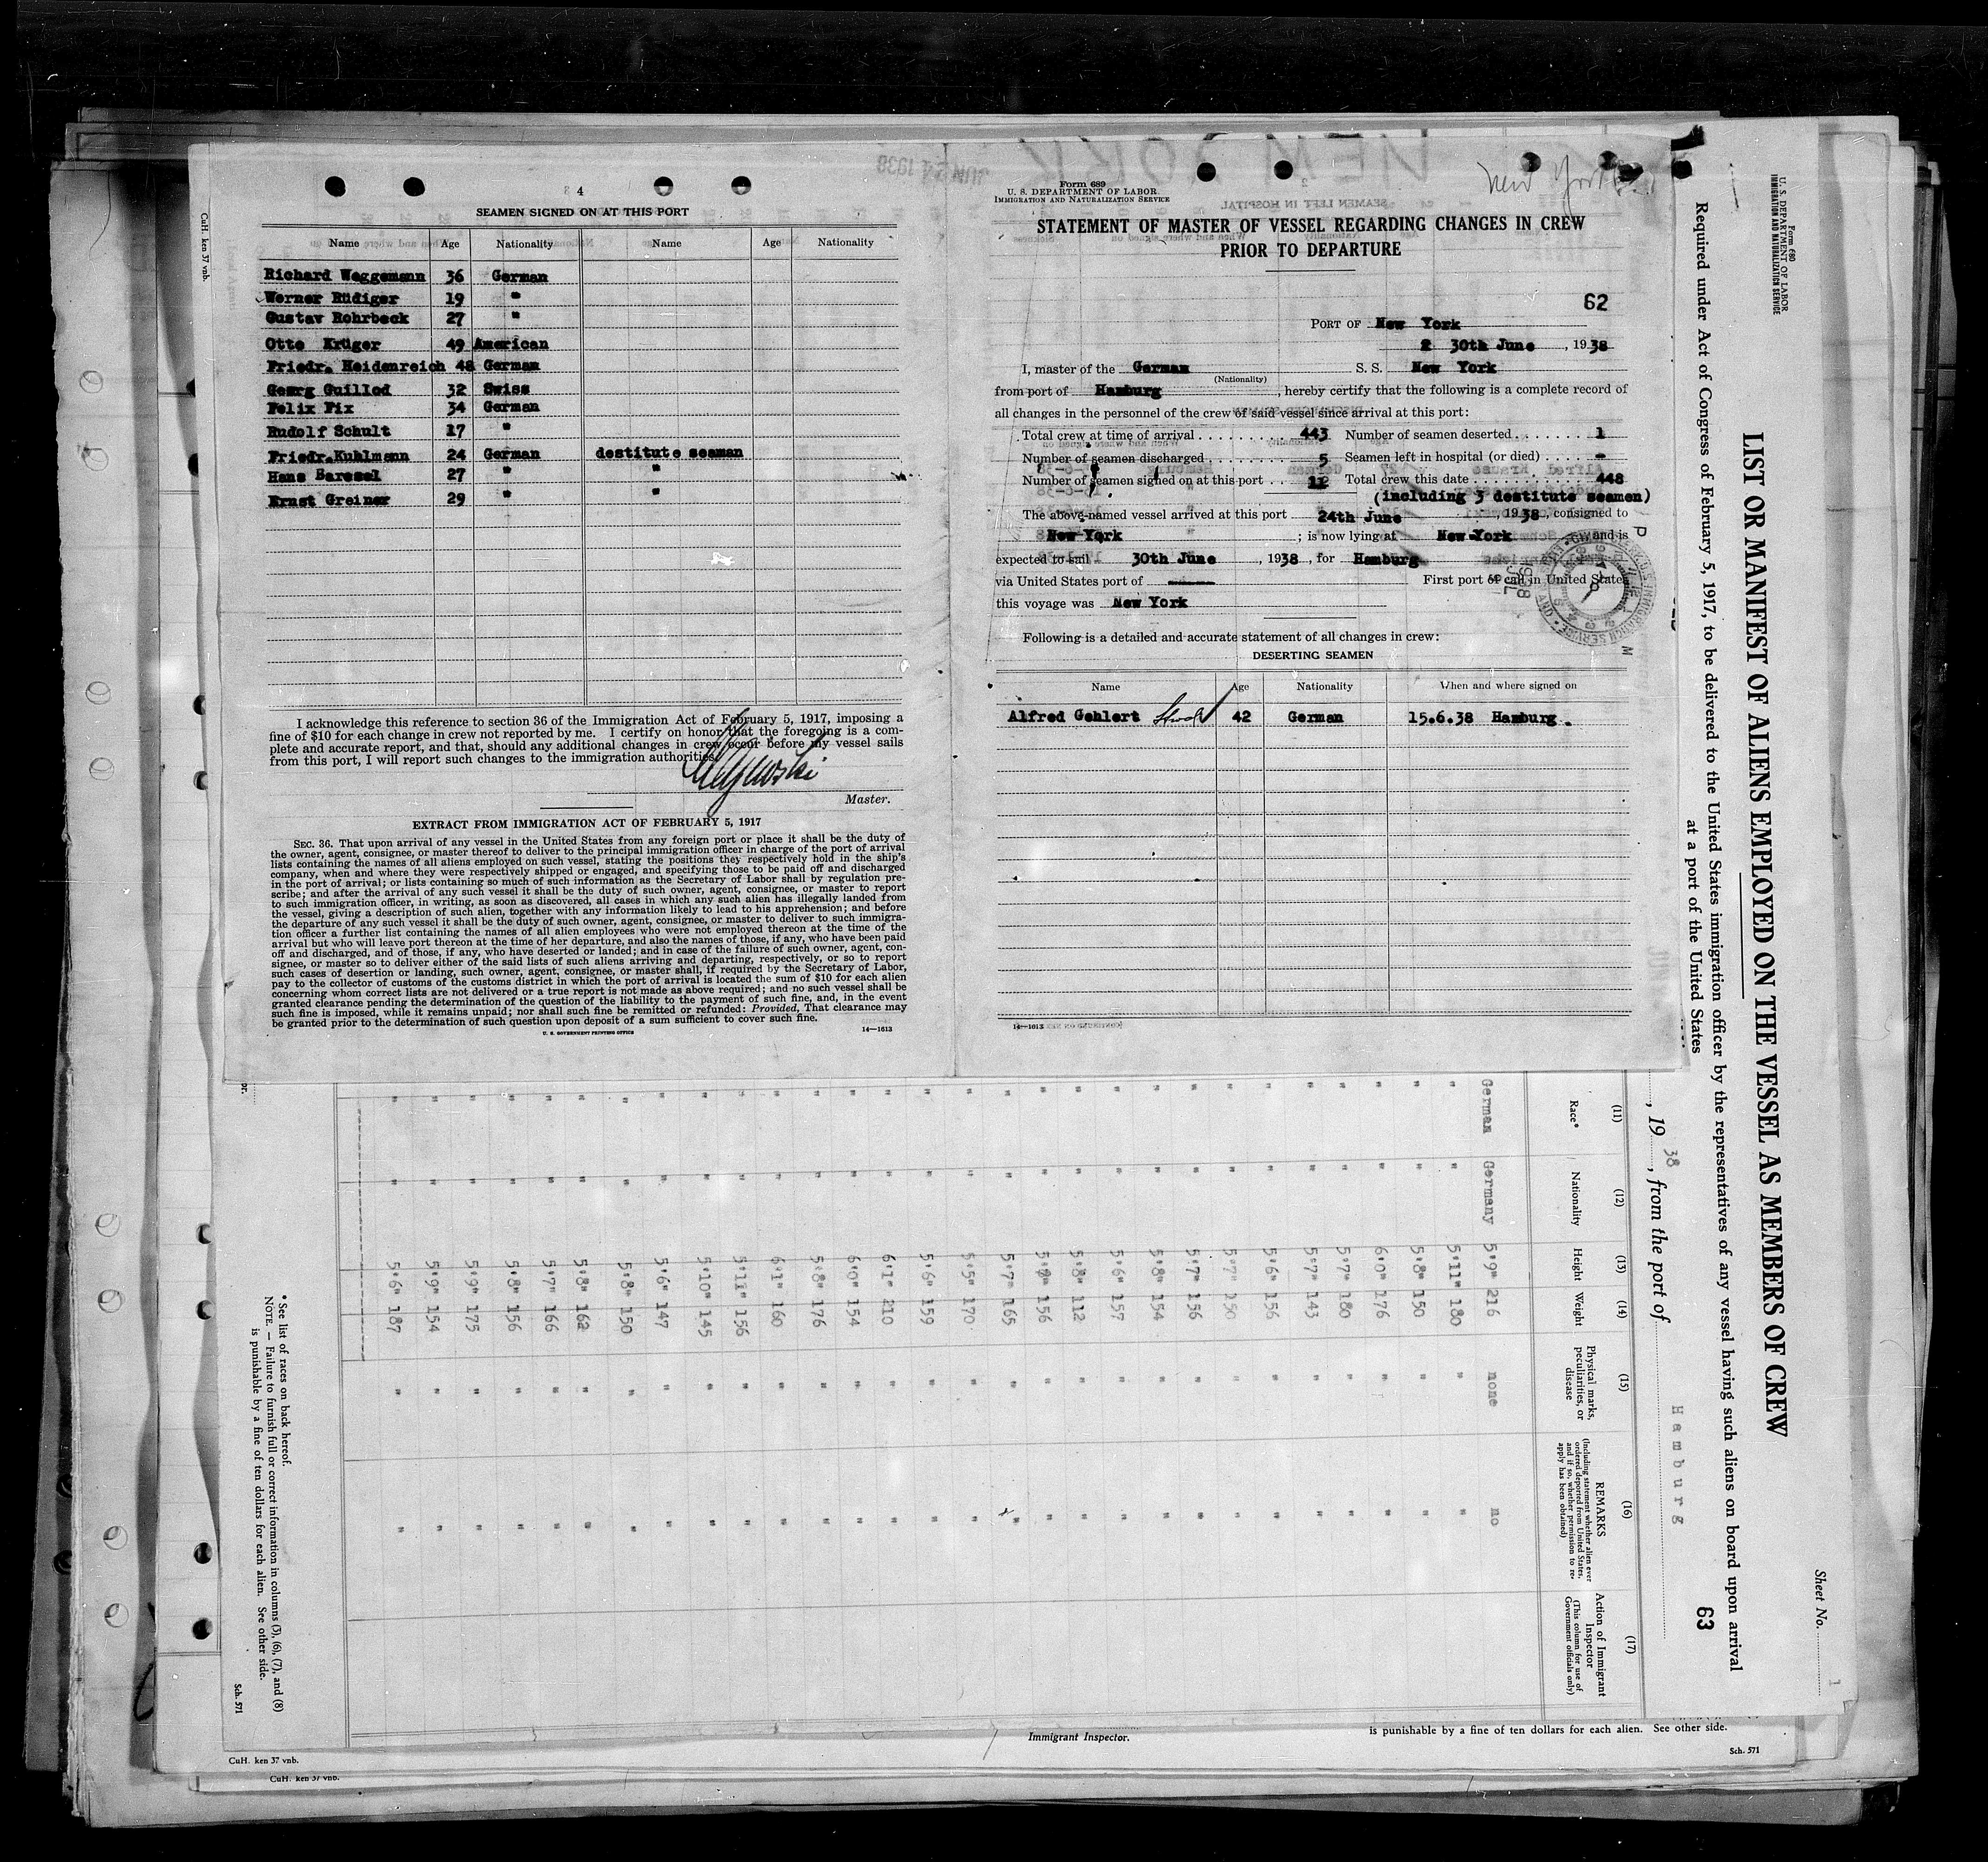 4
SEAMEN SIGNED ON AT THIS PORT
Name Age Nationality Name Age Nationality
Richard Waggemann 36 German
Werner Rüdiger 19 "
Gustav Rohrbeck 27 "
Otto Krüger 49 American
Friedr. Heidenreich 48 German
Georg Guillod 32 Swiss
Felix Fix 34 German
Rudolf Schult 17 "
Friedr.Kuhlmann 24 German destitute seaman
Hans Baressel 27 " "
Ernst Greiner 29 " "
I acknowledge this reference to section 36 of the Immigration Act of February 5, 1917, imposing a
fine of $10 for each change in crew not reported by me. I certify on honor that the foregoing is a com-
plete and accurate report, and that, should any additional changes in crew occur before my vessel sails
from this port, I will report such changes to the immigration authorities.
Master.
EXTRACT FROM IMMIGRATION ACT OF FEBRUARY 5, 1917
SEC. 36. That upon arrival of any vessel in the United States from any foreign port or place it shall be the duty of
the owner, agent, consignee, or master thereof to deliver to the principal immigration officer in charge of the port of arrival
lists containing the names of all aliens employed on such vessel, stating the positions they respectively hold in the ship's
company, when and where they were respectively shipped or engaged, and specifying those to be paid off and discharged
in the port of arrival; or lists containing so much of such information as the Secretary of Labor shall by regulation pre-
scribe; and after the arrival of any such vessel it shall be the duty of such owner, agent, consignee, or master to report
to such immigration officer, in writing, as soon as discovered, all cases in which any such alien has illegally landed from
the vessel, giving a description of such alien, together with any information likely to lead to his apprehension; and before
the departure of any such vessel it shall be the duty of such owner, agent, consignee, or master to deliver to such immigra-
tion officer a further list containing the names of all alien employees who were not employed thereon at the time of the
arrival but who will leave port thereon at the time of her departure, and also the names of those, if any, who have been paid
off and discharged, and of those, if any, who have deserted or landed; and in case of the failure of such owner, agent, con-
signee, or master so to deliver either of the said lists of such aliens arriving and departing, respectively, or so to report
such cases of desertion or landing, such owner, agent, consignee, or master shall, if required by the Secretary of Labor,
pay to the collector of customs of the customs district in which the port of arrival is located the sum of $10 for each alien
concerning whom correct lists are not delivered or a true report is not made as above required; and no such vessel shall be
granted clearance pending the determination of the question of the liability to the payment of such fine, and, in the event
such fine is imposed, while it remains unpaid; nor shall such fine be remitted or refunded: Provided, That clearance may
be granted prior to the determination of such question upon deposit of a sum sufficient to cover such fine.
U. S. GOVERNMENT PRINTING OFFICE 14—1613
Form 689
U. S. DEPARTMENT OF LABOR
IMMIGRATION AND NATURALIZATION SERVICE
New York
STATEMENT OF MASTER OF VESSEL REGARDING CHANGES IN CREW
PRIOR TO DEPARTURE
62
PORT OF New York
30th June , 1938
I, master of the German S. S. New York
(Nationality)
from port of Hamburg , hereby certify that the following is a complete record of
all changes in the personnel of the crew of said vessel since arrival at this port:
Total crew at time of arrival 443 Number of seamen deserted 1
Number of seamen discharged 5 Seamen left in hospital (or died) -
Number of seamen signed on at this port 11 Total crew this date 448
(including 3 destitute seamen)
The above-named vessel arrived at this port 24th June , 1938, consigned to
New York ; is now lying at New York and is
expected to sail 30th June , 1938, for Hamburg
via United States port of First port of call in United States
this voyage was New York
Following is a detailed and accurate statement of all changes in crew:
DESERTING SEAMEN
Name Age Nationality When and where signed on
Alfred Gehlert 42 German 15.6.38 Hamburg.
14—1613
Form 680
U. S. DEPARTMENT OF LABOR
IMMIGRATION AND NATURALIZATION SERVICE
Sheet No. 1
LIST OR MANIFEST OF ALIENS EMPLOYED ON THE VESSEL AS MEMBERS OF CREW
Required under Act of Congress of February 5, 1917, to be delivered to the United States immigration officer by the representatives of any vessel having such aliens on board upon arrival
at a port of the United States
63
, 1938, from the port of Hamburg
(11) (12) (13) (14) (15) (16) (17)
Race* Nationality Height Weight Physical marks, peculiarities, or disease REMARKS (Including statement whether alien ever ordered deported from United States, and if so, whether permission to re-apply has been obtained) Action of Immigrant Inspector (This column for use of Government officials only)
German Germany 5'9" 216 none no
" " 5'11" 180 " "
" " 5'8" 150 " "
" " 6'0" 176 " "
" " 5'7" 180 " "
" " 5'7" 143 " "
" " 5'6" 156 " "
" " 5'7" 150 " "
" " 5'7" 156 " "
" " 5'8" 154 " "
" " 5'6" 157 " "
" " 5'8" 112 " "
" " 156 " "
" " 5'7" 165 " "
" " 5'5" 170 " "
" " 5'6" 159 " "
" " 6'1" 210 " "
" " 6'0" 154 " "
" " 5'8" 176 " "
" " 6'1" 160 " "
" " 5'11" 156 " "
" " 5'10" 145 " "
" " 5'6" 147 " "
" " 5'8" 150 " "
" " 5'8" 162 " "
" " 5'7" 166 " "
" " 5'8" 156 " "
" " 5'9" 175 " "
" " 5'9" 154 " "
" " 5'6" 187 " "
* See list of races on back hereof.
NOTE. — Failure to furnish full or correct information in columns (3), (6), (7), and (8)
is punishable by a fine of ten dollars for each alien. See other side.
Sch. 571
CuH. ken 37 vnb.
Immigrant Inspector.
is punishable by a fine of ten dollars for each alien. See other side.
Sch. 571
CuH. ken 37 vnb.
CuH. ken 37 vnb.